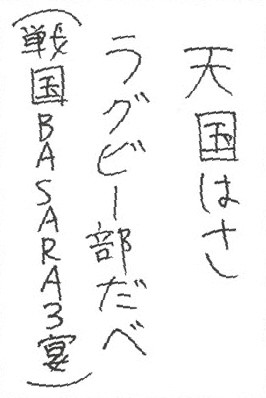 天国はさ
ラグビー部だべ
(戦国BASARA3宴)